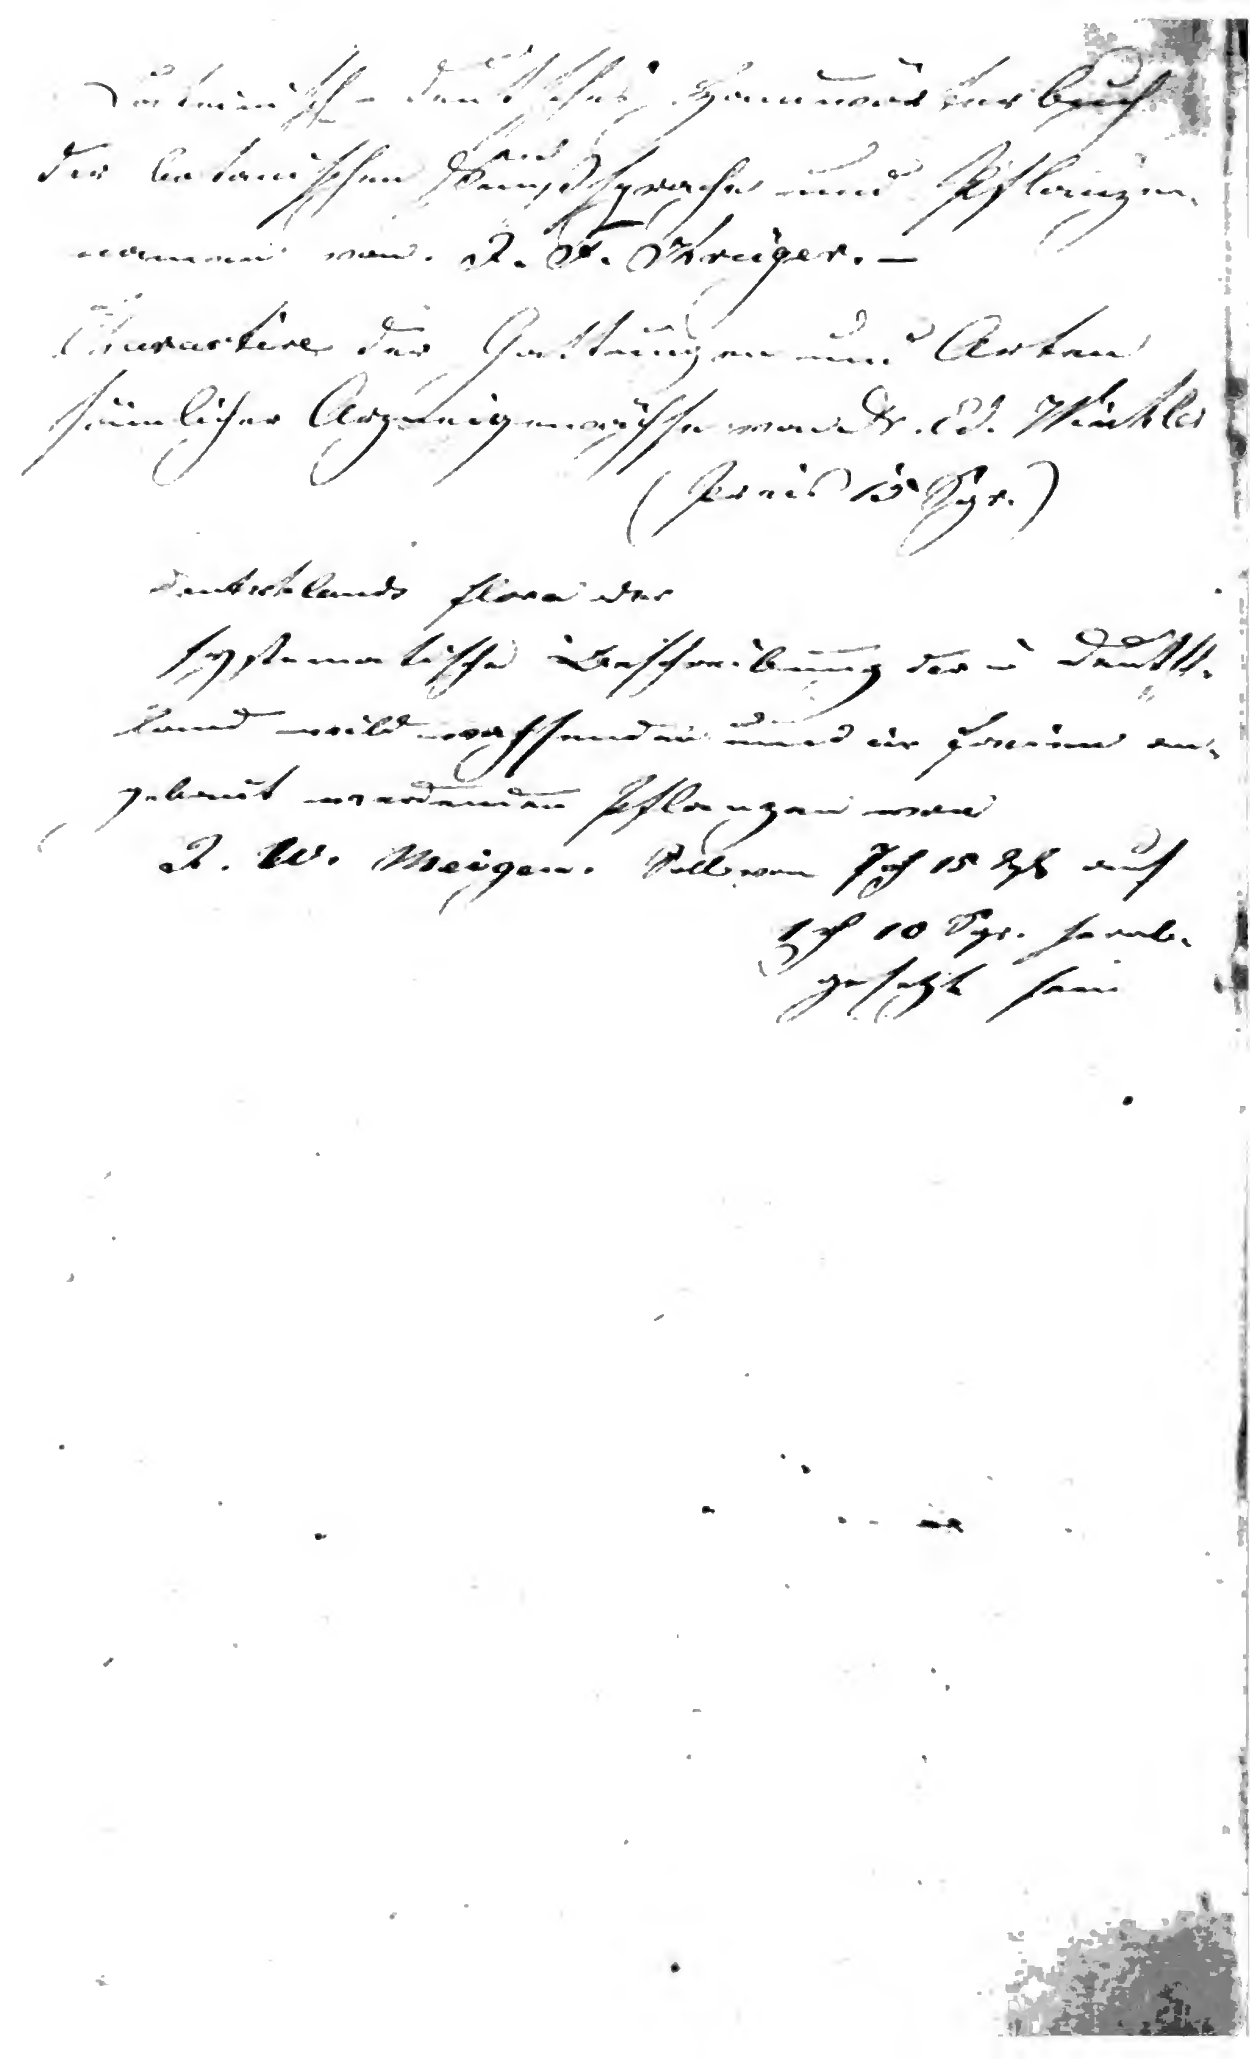 Lateinisch-deutsches Handwörterbuch
der botanischen Kunstsprache und Pflanzen-
namen von J. F. Krüger. —
Charactere der Gattungen und Arten
sämlicher Arzneigewächse von Dr. Ed. Winkler
(Preis 15 Sgr.)
Deutschlands Flora oder
systematische Beschreibung der in Deutsch-
land wild wachsenden und im Freien an-
gebaut werdenden Pflanzen von
J. W. Meigen. Soll von 7 15 auf
10 Sgr. herab-
gesetzt sein